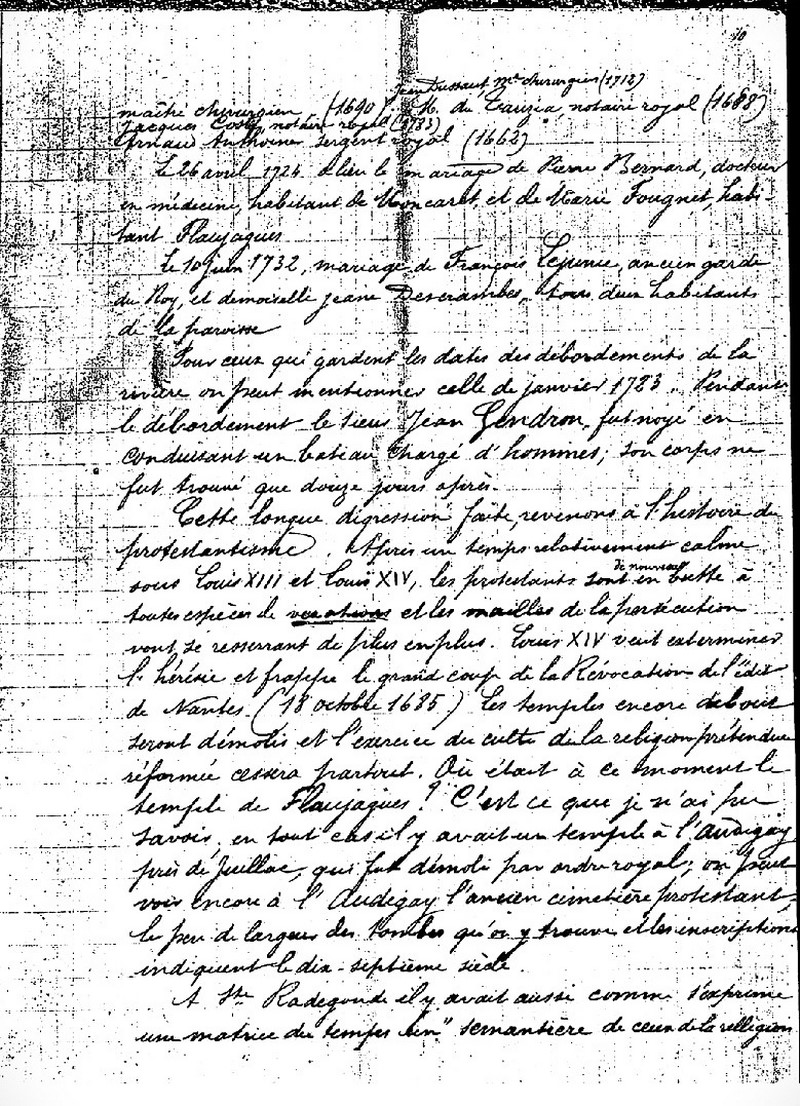 10
Jean Dussaut Mtre chirurgien (1713)
maître chirurgien (1690). M. du Tauzia, notaire royal (1688)
Jacques Coste, notaire royal (1783)
Arnaud Antoine sergent royal (1662)
Le 26 avril 1724. a lieu le mariage de Pierre Bernard, docteur
en médecine, habitant de Moncaret, et de Marie Fougnet, habi-
tant Flaujagues
Le 10 juin 1732, mariage de François Lejunie, ancien garde
du Roy, et demoiselle jeane Descrambes, tous deux habitants
de la paroisse
Pour ceux qui gardent les dates des débordements de la
rivière on peut mentionner celle de janvier 1723. Pendant
le débordement le sieur Jean Gendron, fut noyé en
conduisant un bateau chargé d'hommes; son corps ne
fut trouvé que douze jours après.
Cette longue digression faite, revenons à l'histoire du
protestantisme. Après un temps relativement calme
sous Louis XIII et Louis XIV, les protestants sont de nouveau en butte à
toutes espèces de vexations et les mailles de la persécution
vont se resserrant de plus en plus. Louis XIV veut exterminer
l'hérésie et frappe le grand coup de la Révocation de l'édit
de Nantes. (18 octobre 1685) Les temples encore debout
seront démolis et l'exercice du culte de la religion prétendue
réformée cessera partout. Où était à ce moment le
temple de Flaujagues? C'est ce que je n'ai pu
savoir, en tout cas il y avait un temple à l'Audigay
près de Juillac, qui fut démoli par ordre royal; on peut
voir encore à l'Audigay l'ancien cimetière protestant,
le peu de largeur des tombes qu'on y trouve et les inscriptions
indiquent le dix-septième siècle.
A Ste Radegonde il y avait aussi comme s'exprime
une matrice du temps un "semantière de ceux de la relligion